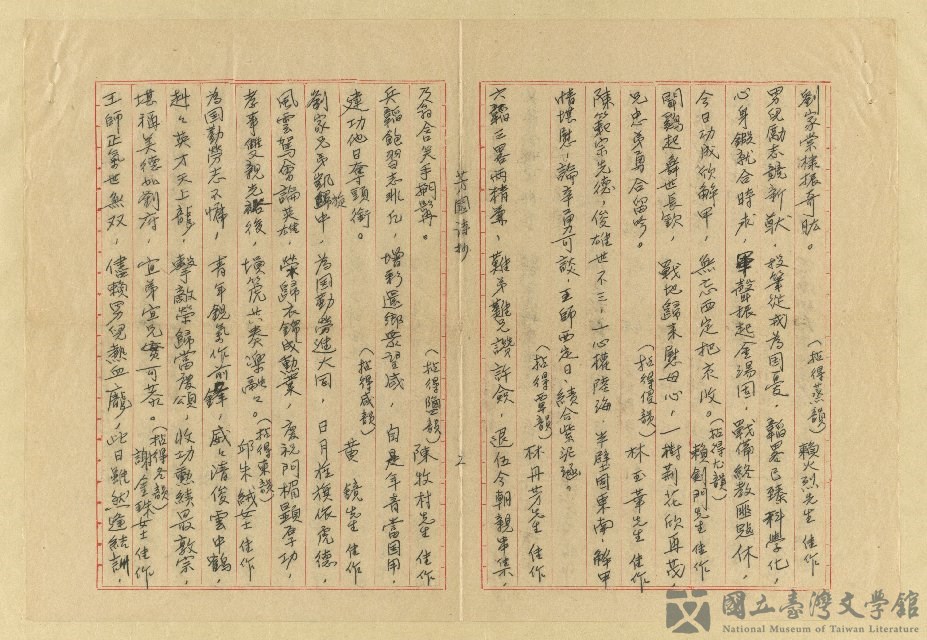 劉家棠棣振奇肱。（拈得蒸韻）賴火烈先生 佳作
男兒勵志競新猷，投筆從戎為国憂，韜畧已臻科學化，
心身鍛就合時求，軍聲振起金湯固，戰備終教匪題休，
今日功成欣解甲，無忘西定把京收。（拈得尤韻）賴劍門先生 佳作
聞鷄起舞世長欽，戰地歸來慰母心，一樹荊花欣再茂，
兄忠弟勇合留吟。（拈得侵韻）林玉華先生 佳作
陳範宗先德，俊雄世不三，一心權陸海，半壁固東南，解甲
情堪慰，論辛勇可談，王師西定日，績合紫泥函。
（拈得覃韻）林丹芳先生 佳作
六韜三畧两精兼，難弟難兄讚許僉，退伍今朝親串集，
芳園詩抄
2
乃翁含笑手掀髯。（拈得鹽韻）陳牧村先生 佳作
兵韜飽習志非凡，增彩還鄉眾望咸，自是年青當国用，
建功他日奪頭銜。（拈得咸韻）黄 鏡先生 佳作
劉家兄弟凱旋中，為国勤勞進大同，日月旌旗依虎德，
風雲駕會論英雄，榮歸衣錦成勳業，慶祝門楣顯厚功，
孝事雙親光裕後，壎篪共奏樂融々。（拈得東韻）邱朱絨女士 佳作
為国勤勞志不慵，青年銳氣作前鋒，威々清俊雲中鶴，
赳々英才天上龍，擊敵榮歸當慶頌，收功勳績最敦宗，
堪稱美德如劉府，宜弟宜兄實可恭。（拈得冬韻）謝金珠女士 佳作
王師正氣世無双，儘賴男兒熱血龐，此日雖然途結訓，
國立臺灣文學館
National Museum of Taiwan Literature